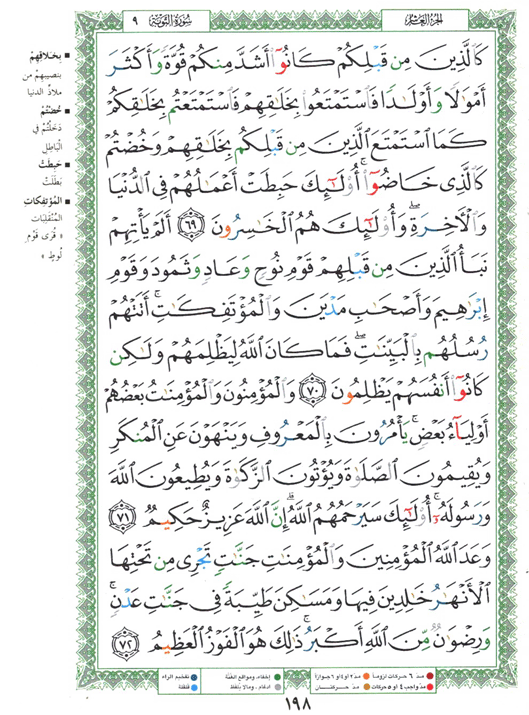 الجزء العاشر
سورة التوبة
٩
كَالَّذِينَ مِن قَبْلِكُمْ كَانُوٓا۟ أَشَدَّ مِنكُمْ قُوَّةً وَأَكْثَرَ
أَمْوَٰلًا وَأَوْلَٰدًا فَٱسْتَمْتَعُوا۟ بِخَلَٰقِهِمْ فَٱسْتَمْتَعْتُم بِخَلَٰقِكُمْ
كَمَا ٱسْتَمْتَعَ ٱلَّذِينَ مِن قَبْلِكُم بِخَلَٰقِهِمْ وَخُضْتُمْ
كَٱلَّذِى خَاضُوٓا۟ ۚ أُو۟لَٰٓئِكَ حَبِطَتْ أَعْمَٰلُهُمْ فِى ٱلدُّنْيَا
وَٱلْءَاخِرَةِ ۖ وَأُو۟لَٰٓئِكَ هُمُ ٱلْخَٰسِرُونَ ٦٩ أَلَمْ يَأْتِهِمْ
نَبَأُ ٱلَّذِينَ مِن قَبْلِهِمْ قَوْمِ نُوحٍ وَعَادٍ وَثَمُودَ وَقَوْمِ
إِبْرَٰهِيمَ وَأَصْحَٰبِ مَدْيَنَ وَٱلْمُؤْتَفِكَٰتِ ۚ أَتَتْهُمْ
رُسُلُهُم بِٱلْبَيِّنَٰتِ ۖ فَمَا كَانَ ٱللَّهُ لِيَظْلِمَهُمْ وَلَٰكِن
كَانُوٓا۟ أَنفُسَهُمْ يَظْلِمُونَ ٧٠ وَٱلْمُؤْمِنُونَ وَٱلْمُؤْمِنَٰتُ بَعْضُهُمْ
أَوْلِيَآءُ بَعْضٍ ۚ يَأْمُرُونَ بِٱلْمَعْرُوفِ وَيَنْهَوْنَ عَنِ ٱلْمُنكَرِ
وَيُقِيمُونَ ٱلصَّلَوٰةَ وَيُؤْتُونَ ٱلزَّكَوٰةَ وَيُطِيعُونَ ٱللَّهَ
وَرَسُولَهُۥٓ ۚ أُو۟لَٰٓئِكَ سَيَرْحَمُهُمُ ٱللَّهُ ۗ إِنَّ ٱللَّهَ عَزِيزٌ حَكِيمٌ ٧١
وَعَدَ ٱللَّهُ ٱلْمُؤْمِنِينَ وَٱلْمُؤْمِنَٰتِ جَنَّٰتٍ تَجْرِى مِن تَحْتِهَا
ٱلْأَنْهَٰرُ خَٰلِدِينَ فِيهَا وَمَسَٰكِنَ طَيِّبَةً فِى جَنَّٰتِ عَدْنٍ ۚ
وَرِضْوَٰنٌ مِّنَ ٱللَّهِ أَكْبَرُ ۚ ذَٰلِكَ هُوَ ٱلْفَوْزُ ٱلْعَظِيمُ ٧٢
بِخَلاقِهِمْ
بنصيبهم من
ملاذّ الدنيا
خُضْتُمْ
دَخَلْتُمْ في
الباطِلِ
حَبِطَتْ
بَطَلَتْ
المُؤْتَفِكاتِ
المُنْقَلِبَات
« قُرَى قَوْمِ
لُوطٍ »
مدّ ٦ حركات لزوماً
مدّ ٢ أو ٤ أو ٦ جوازاً
إخفاء، ومواقع الغُنَّة
تفخيم الراء
مدّ واجب ٤ أو ٥ حركات
مدّ حركتان
ادغام، وما لا يُلفظ
قلقلة
١٩٨